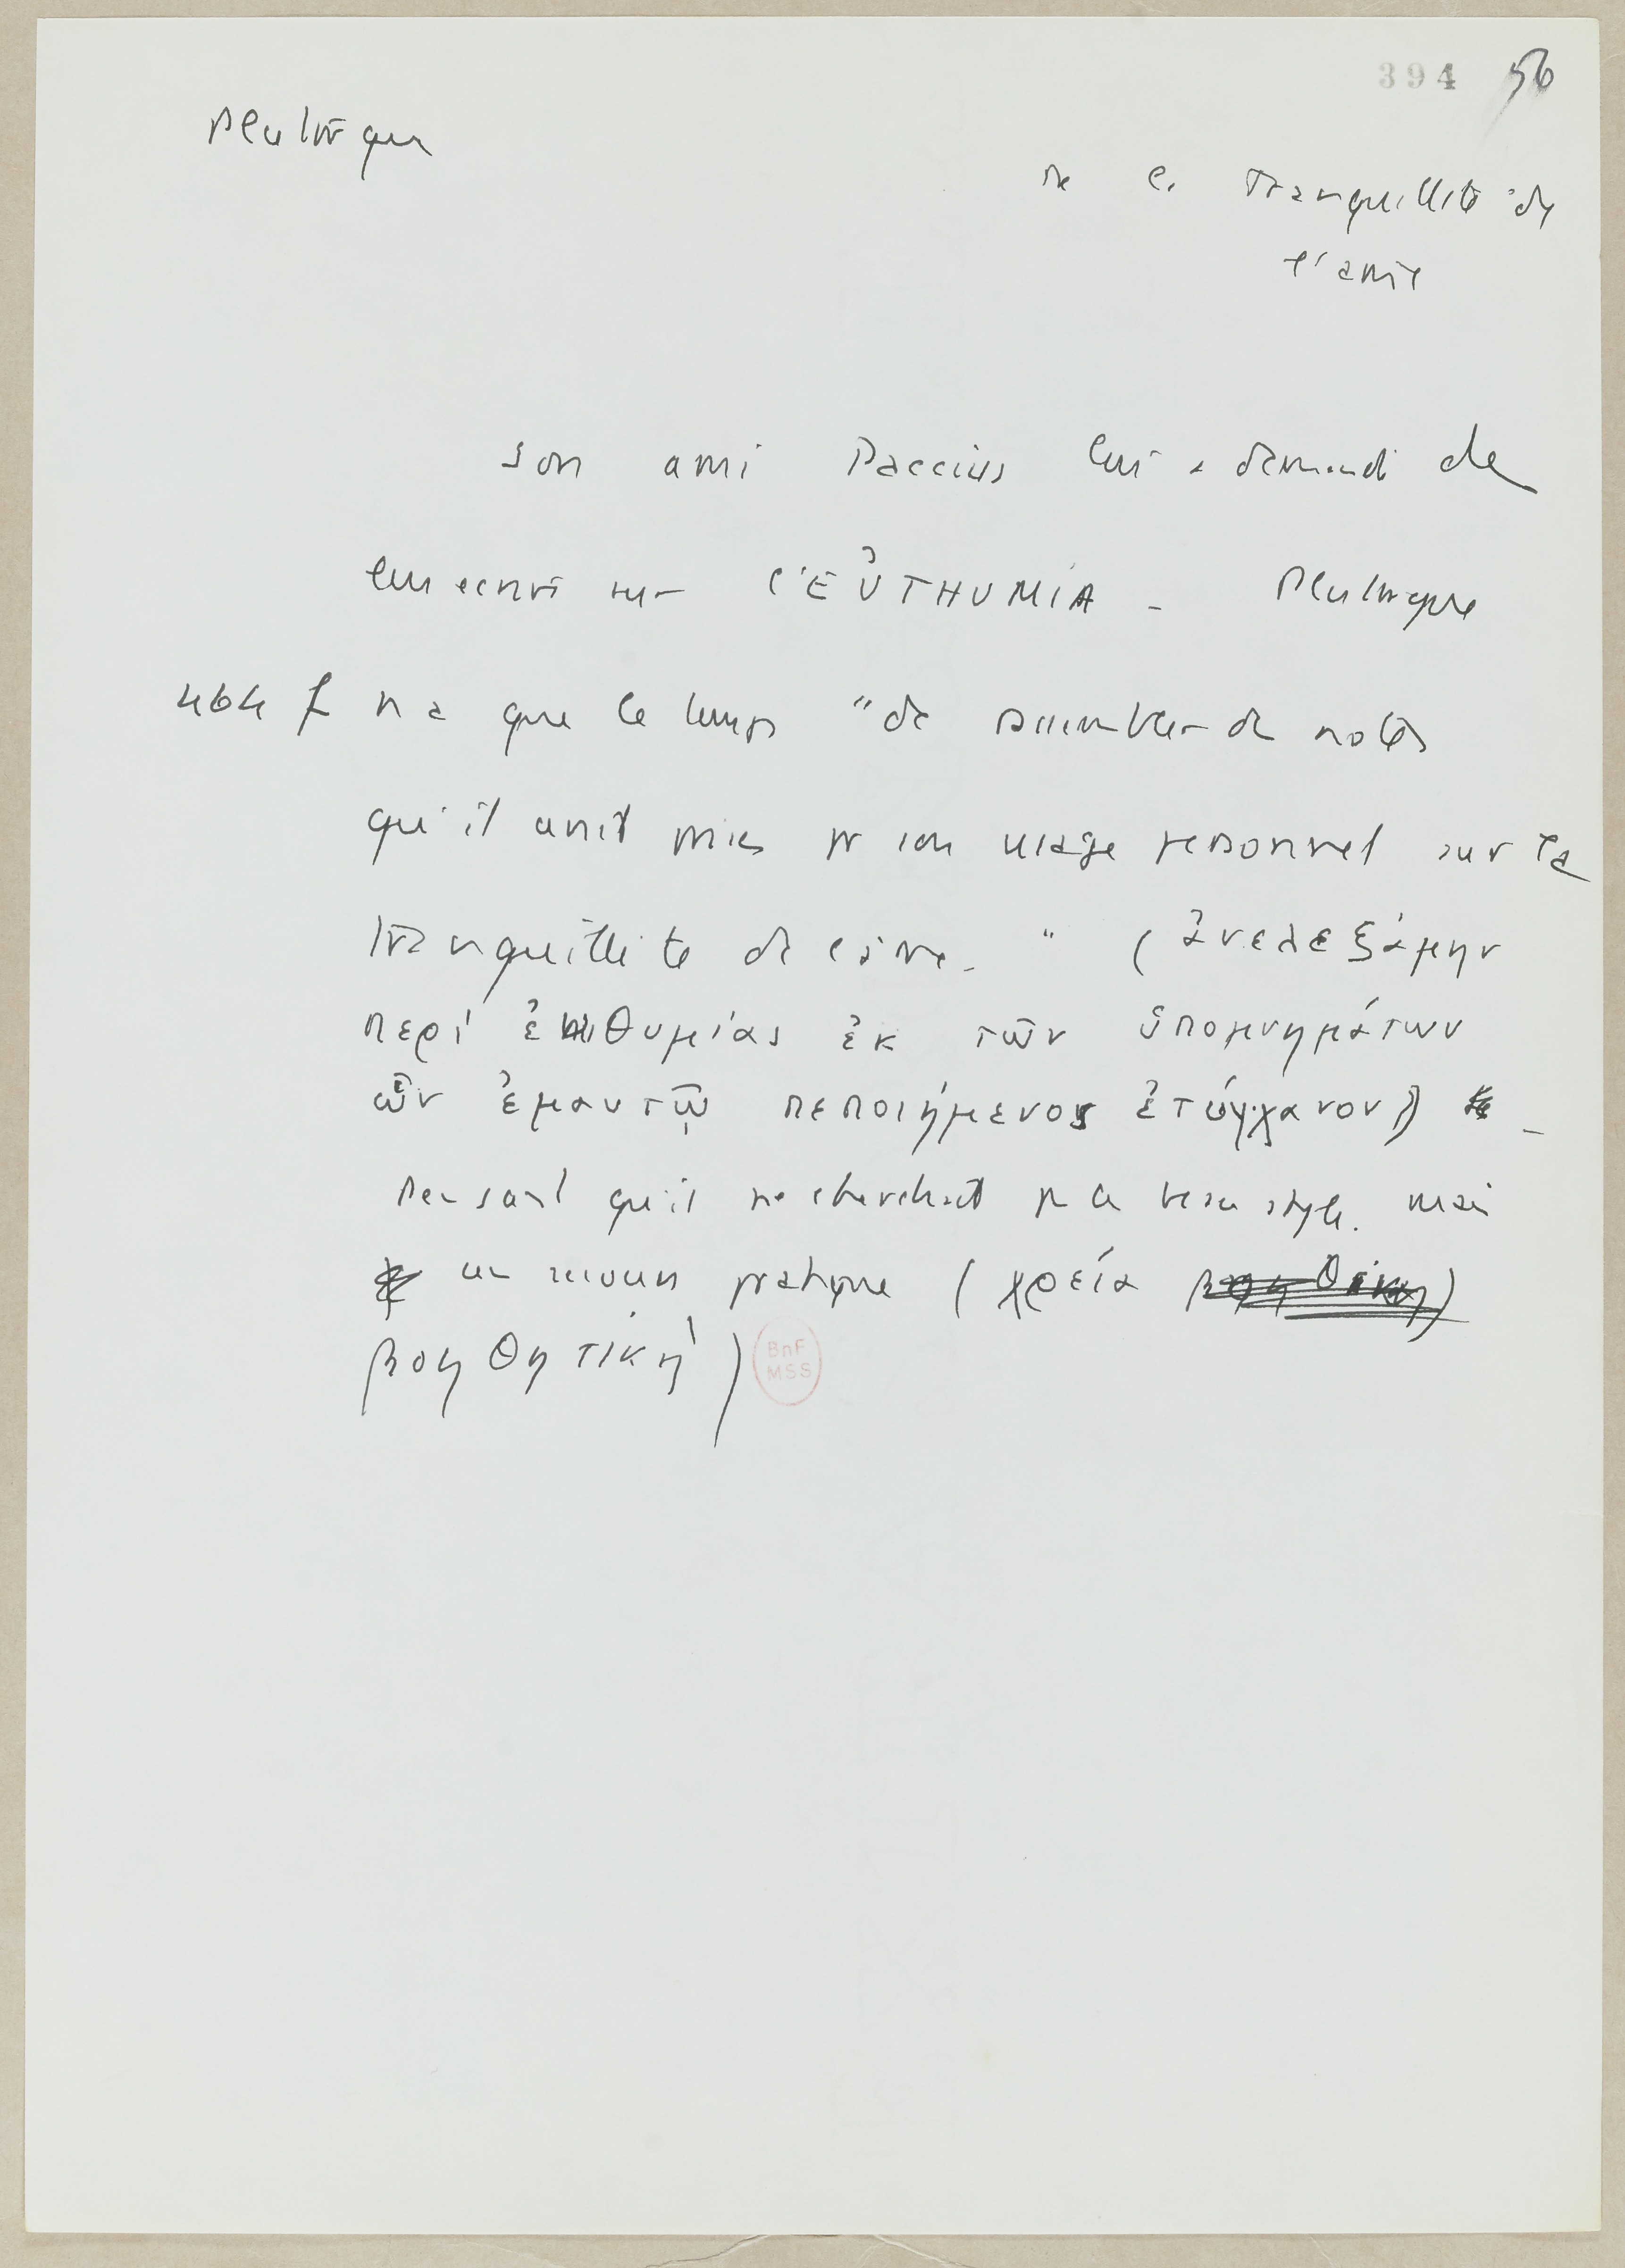 394 56
Plutarque
De la Tranquillité de
l'âme
Son ami Paccius lui a demandé de
lui écrire sur l'EὐTHUMIA - Plutarque
464 f n'a que le temps "de rassembler de notes
qu'il avait prises pr son usage personnel sur la
tranquillité de l'âme." (ἀνελεξάμην
περί ἐπιθυμίας ἐκ τῶν ὑπομνημάτων
ὧν ἐμαυτῷ πεποιήμενος ἐτύγχανον) -
Pensant qu'il ne cherchait pas le beau style. mais
un secours pratique (χρεία
βοηθητική)
BnF
MSS